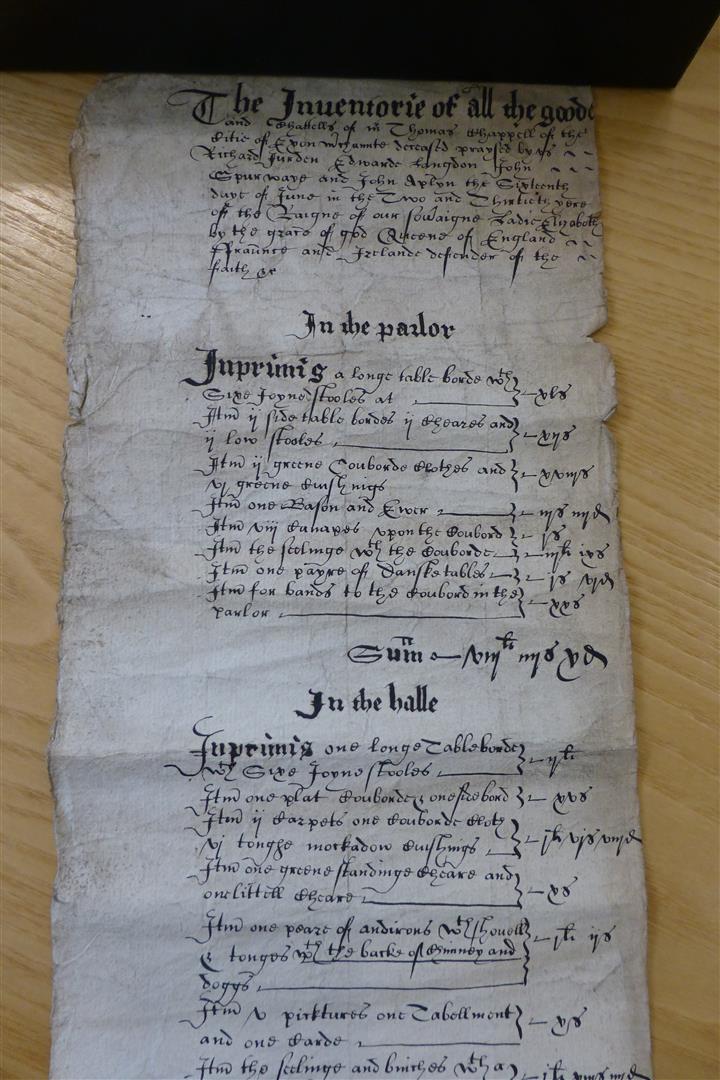 The Inuentorie of all the goode
and Chattells of mr Thomas Chappell of the
Citie of Exon mrchannte deceased praysed by vs
Richard Jurden Edwarde Langdon John
Spurwaye and John Aplyn the Sixteenth
daye of June in the Two and Thirtieth yere
of the Raigne of our soveraigne Ladie Elizabeth
by the grace of god Queene of England
ffraunce and Irelande defender of the
faith &c
In the parlor
Inprimis a longe table borde wth
Sixe Joyned stooles at xls
Itm ij side table bordes ij Cheares and
ij low stooles xijs
Itm ij greene Couborde Clothes and
vj greene Cushings xviijs
Itm one Bason and Ewer iijs iiijd
Itm viij Canapes vpon the Coubord js
Itm the seelinge wth the Couborde iijli ixs
Itm one payre of Danske tables js vjd
Itm for bands to the Coubord in the
parlor xxs
Sum viijli iiijs xd
In the halle
Inprimis one longe Table borde
wth Sixe Joyne stooles ijli
Itm one plat Couborde & one side bord xvs
Itm ij Carpets one Couborde Clote
vj tonghe mockadow Cuishings jli vjs viijd
Itm one greene standinge Cheare and
one littell Cheare xs
Itm one peare of andirons wth shouell
& tonges wth the backe of Chimney and
doggs jli ijs
Itm v picktures one Tabellment
and one Carde xs
Itm the seelinge and binches wth a